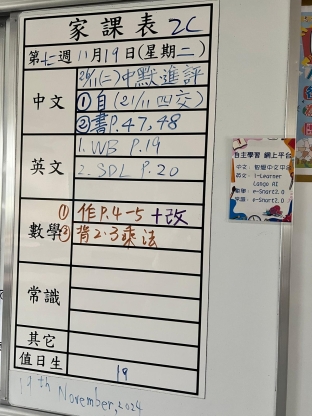 家課表 2C
第十二週 11月19日(星期二)
中文
26/11(二)中默進評
①自(21/11四交)
②書P.47,48
英文
1. WB P.19
2. SDL P.20
數學
①作P.4-5+改
②背2、3乘法
常識
其它
值日生
19
19th November, 2024
自主學習 網上平台
英文: i-Learner
Lango AI
數學: e-Smart2.0
常識: e-Smart2.0